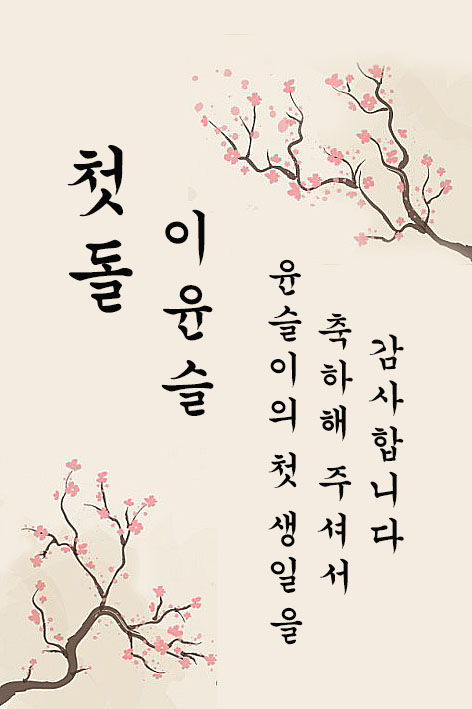 첫돌
이윤슬
윤슬이의 첫 생일을
축하해 주셔서
감사합니다